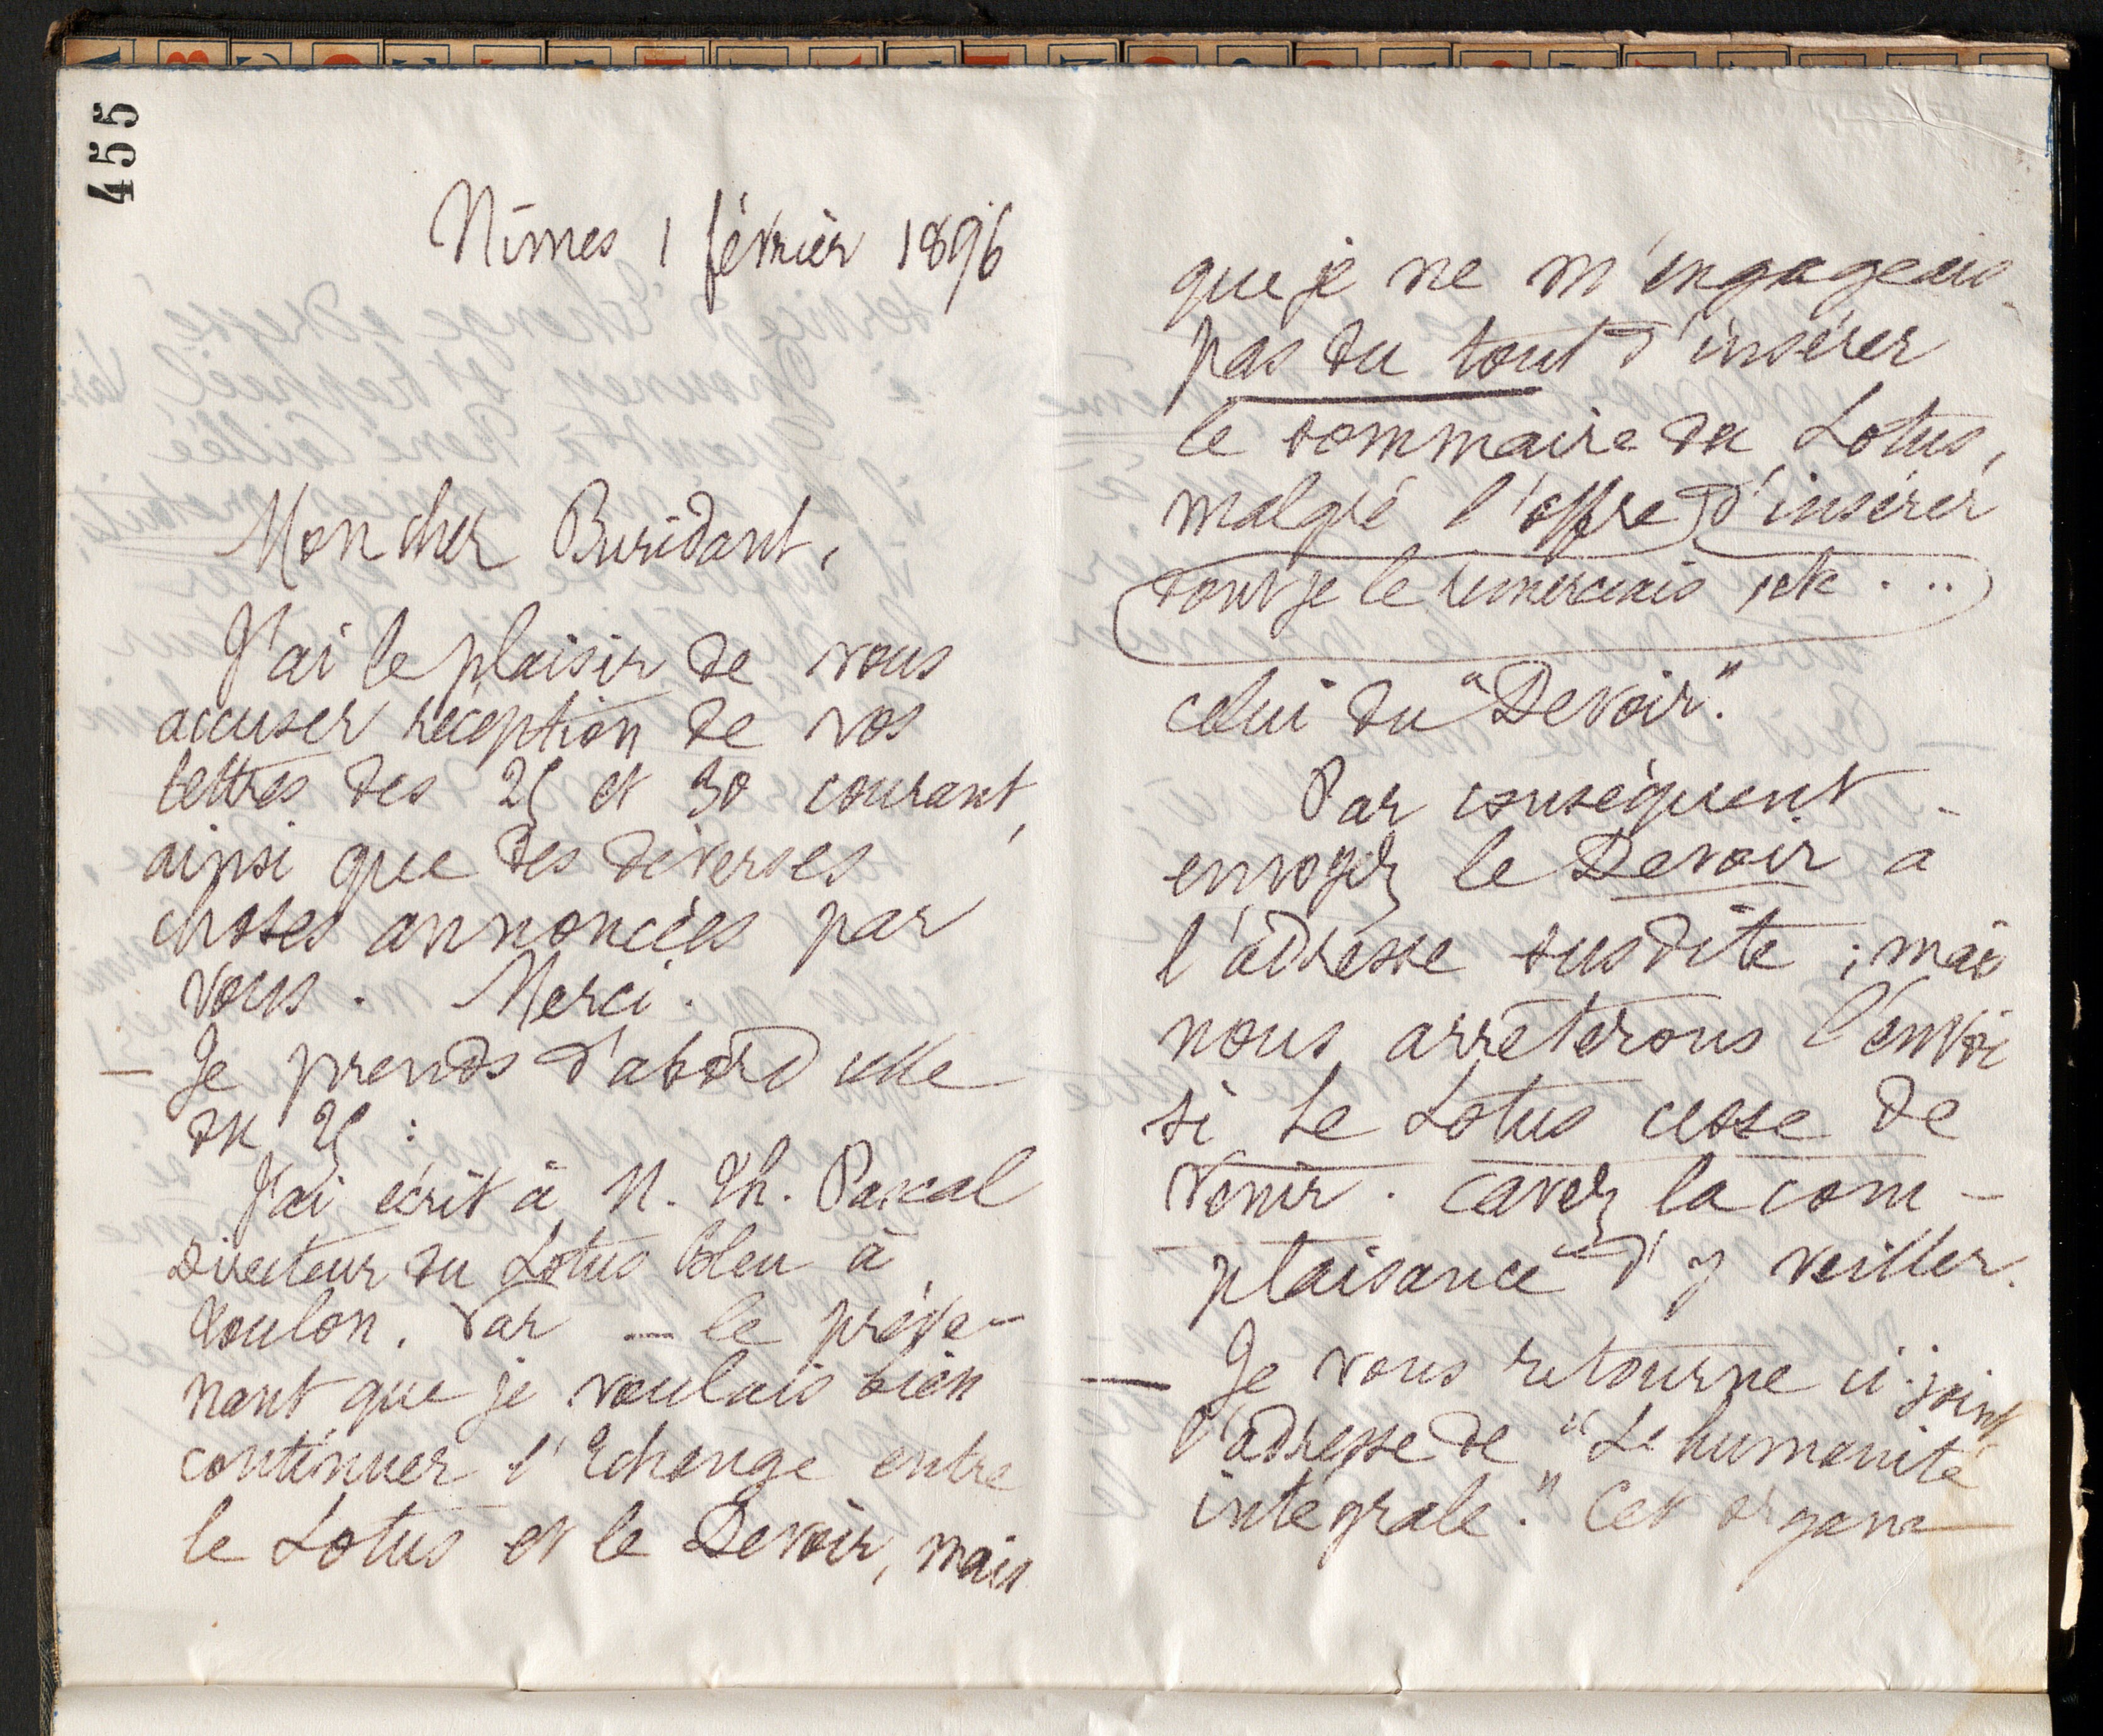 455
Nîmes 1 février 1896
Mon cher Buridant,
J'ai le plaisir de vous
accuser réception de vos
lettres des 25 et 30 courant,
ainsi que des diverses
choses annoncées par
vous. Merci.
— Je prends d'abord celle
du 25 :
J'ai écrit à M. Th. Pascal
directeur du Lotus bleu à
Toulon. Var — le préve-
nant que je voulais bien
continuer l'Echange entre
le Lotus et le Devoir, mais
que je ne m'engageais
pas du tout d'insérer
le sommaire du Lotus,
malgré l'offre d'insérer
dont je le remerciais, etc...
celui du "Devoir."
Par conséquent
envoyez le Devoir a
l'adresse susdite ; mais
nous arrêterons l'envoi
si le Lotus cesse de
venir. Ayez la com-
plaisance d'y veiller.
— Je vous retourne ci-joint
l'adresse de "L'humanité
intégrale." Cet organe